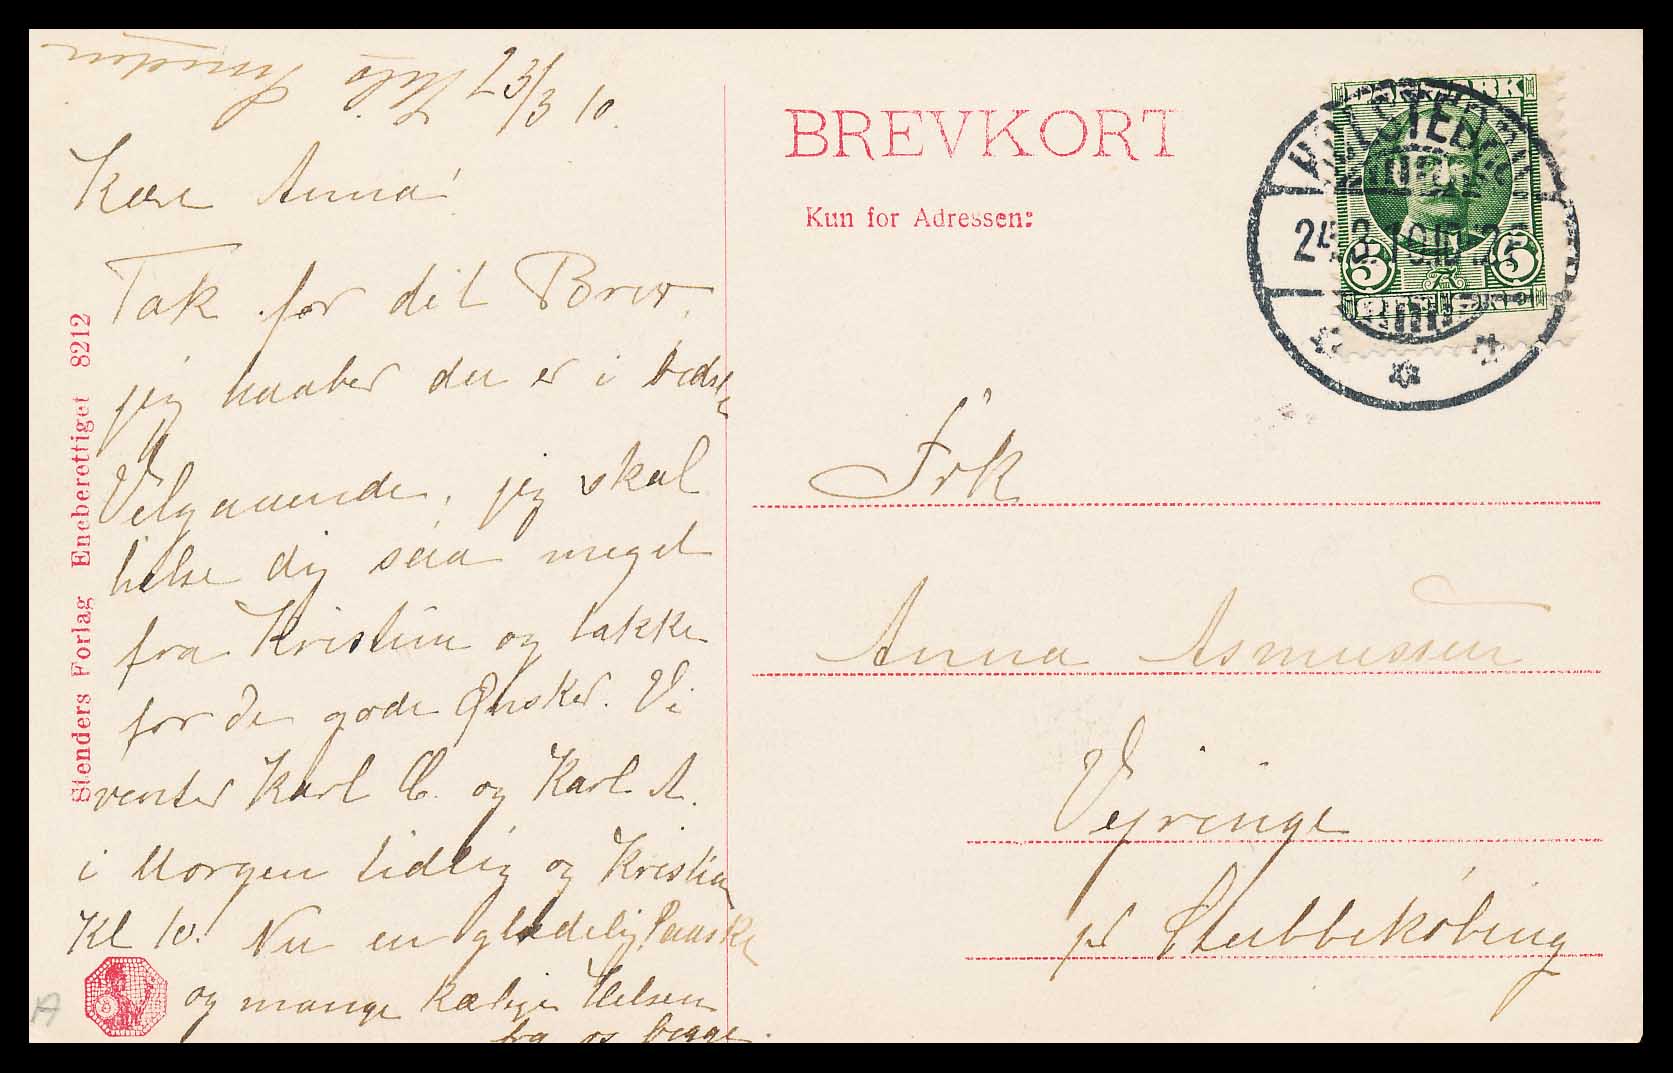 23/3 10.
Kære Anna!
Tak for dit Brev,
jeg haaber du er i bedste
Velgaaende, jeg skal
hilse dig saa meget
fra Kristine og takke
for de gode Ønsker. Vi
venter Karl C. og Karl A.
i Morgen tidlig og Kristian
Kl 10. Nu en glædelig Paaske
og mange kærlige Hilsen
fra os begge.
Stenders Forlag Eneberettiget 8212
BREVKORT
Kun for Adressen:
DANMARK
5 5
HOLSTEBRO
24.3.10.10-12F
Frk
Anna Asmussen
Vejringe
pr Stubbekøbing
A